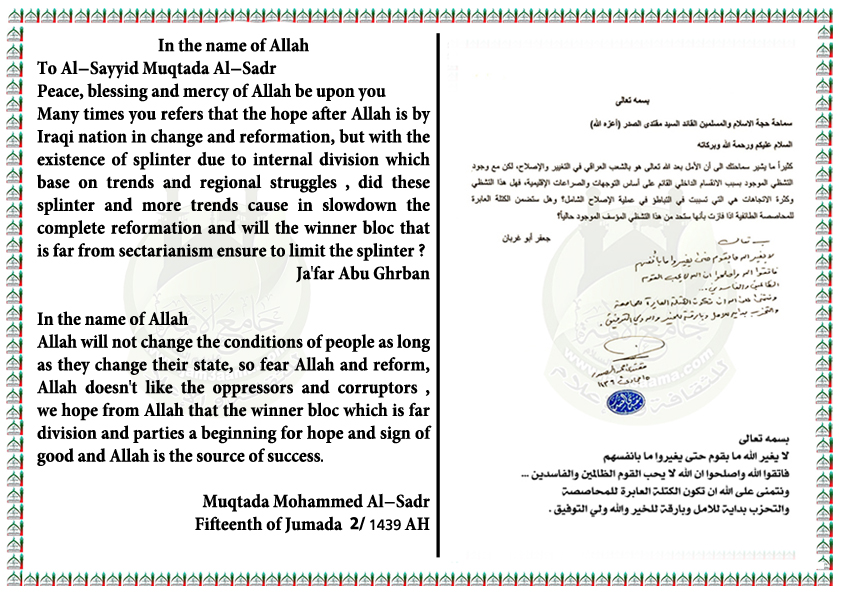 In the name of Allah
To Al–Sayyid Muqtada Al–Sadr
Peace, blessing and mercy of Allah be upon you
Many times you refers that the hope after Allah is by
Iraqi nation in change and reformation, but with the
existence of splinter due to internal division which
base on trends and regional struggles , did these
splinter and more trends cause in slowdown the
complete reformation and will the winner bloc that
is far from sectarianism ensure to limit the splinter ?
Ja'far Abu Ghrban
In the name of Allah
Allah will not change the conditions of people as long
as they change their state, so fear Allah and reform,
Allah doesn't like the oppressors and corruptors ,
we hope from Allah that the winner bloc which is far
division and parties a beginning for hope and sign of
good and Allah is the source of success.
Muqtada Mohammed Al–Sadr
Fifteenth of Jumada 2/ 1439 AH
بسمه تعالى
سماحة حجة الاسلام والمسلمين القائد السيد مقتدى الصدر (أعزه الله)
السلام عليكم ورحمة الله وبركاته
كثيراً ما يشير سماحتك الى أن الأمل بعد الله تعالى هو بالشعب العراقي في التغيير والإصلاح، لكن مع وجود
التشظي الموجود بسبب الانقسام الداخلي القائم على أساس التوجهات والصراعات الإقليمية، فهل هذا التشظي
وكثرة الاتجاهات هي التي تسببت في التباطؤ في عملية الإصلاح الشامل؟ وهل ستضمن الكتلة العابرة
للمحاصصة الطائفية اذا فازت بأنها ستحد من هذا التشظي المؤسف الموجود حالياً؟
جعفر أبو غربان
بسمه تعالى
لا يغير الله ما بقوم حتى يغيروا ما بانفسهم
فاتقوا الله واصلحوا ان الله لا يحب القوم
الظالمين والفاسدين...
ونتمنى على الله ان تكون الكتلة العابرة للمحاصصة
والتحزب بداية للأمل وبارقة للخير والله ولي التوفيق .
بسمه تعالى
لا يغير الله ما بقوم حتى يغيروا ما بانفسهم
فاتقوا الله واصلحوا ان الله لا يحب القوم الظالمين والفاسدين ...
ونتمنى على الله ان تكون الكتلة العابرة للمحاصصة
والتحزب بداية للامل وبارقة للخير والله ولي التوفيق .